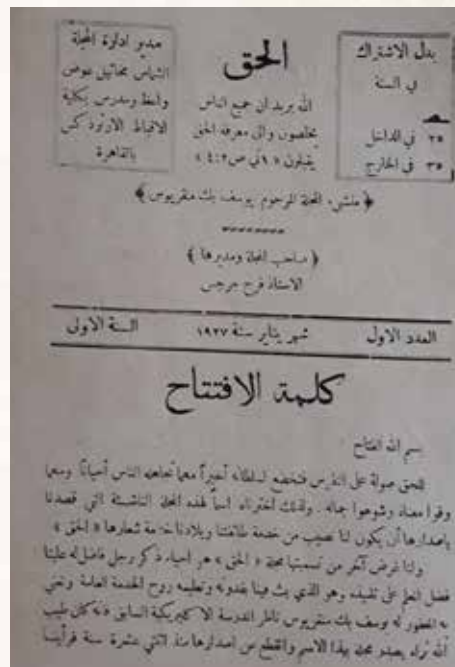 بدل الاشتراك
في السنة
٢٥ في الداخل
٣٥ في الخارج
الحق
الله يريد ان جميع الناس
يخلصون والى معرفة الحق
يقبلون « ١ تي ص ٢ : ٤ »
مدير ادارة المجلة
الشماس ميخائيل عوض
واعظ ومدرس بكلية
الاقباط الارثوذكس
بالقاهرة
﴿ منشىء المجلة المرحوم يوسف بك منقريوس ﴾
﴿ صاحب المجلة ومديرها ﴾
الاستاذ فرج جرجس
العدد الاول شهر يناير سنة ١٩٢٧ السنة الاولى
كلمة الافتتاح
بسم الله الفتاح
للحق صولة على النفوس فتخضع لسلطانه أخيراً مهما تجاهله الناس أحياناً ومهما
وقروا معناه وشوهوا جماله . ولذلك اخترناه اسماً لهذه المجلة الناشئة التي قصدنا
باصدارها أن يكون لنا نصيب من خدمة طائفتنا وبلادنا خدمة شعارها « الحق »
ولنا غرض آخر من تسميتها مجلة « الحق » هو احياء ذكر رجل فاضل له علينا
فضل المعلم على تلميذه وهو الذي بث فينا بقدوته وتعليمه روح الخدمة العامة ونعني
به المغفور له يوسف بك منقريوس ناظر المدرسة الاكليريكية السابق فانه كان طيب
الله ثراه يصدر مجلة بهذا الاسم وانقطع عن اصدارها منذ اثنتي عشرة سنة فرأينا